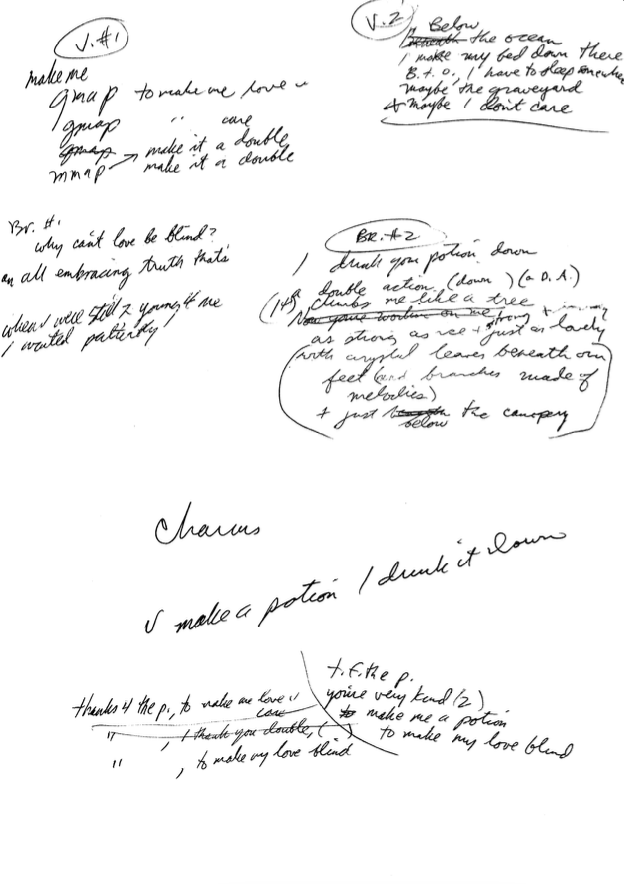 V. #1
make me
gmap to make me love u
1 gmap " care
gmap make it a double
mmap → make it a double
V. 2
Below
Beneath the ocean
I make my bed down there
B. t. o., I have to sleep somewhere
maybe the graveyard
+ maybe I don't care
Br. #1
why can't love be blind?
an all embracing truth that's
when I were still 2 young 4 me
I waited patiently
BR. #2
I drink your potion down
a double action (down) (a D. A.)
climbs me like a tree
Now you're workin on me strong +
as strong as + just as lovely
with crystal leaves beneath our
feet (and branches made of
melodies)
+ just beneath the canopy
below
Chorus
U make a potion I drink it down
thanks 4 the p., to make me love u
care
" , I thank you double, ( )
" , to make my love blind
t. f. the p.
you're very kind (2)
to make me a potion
to make my love blind